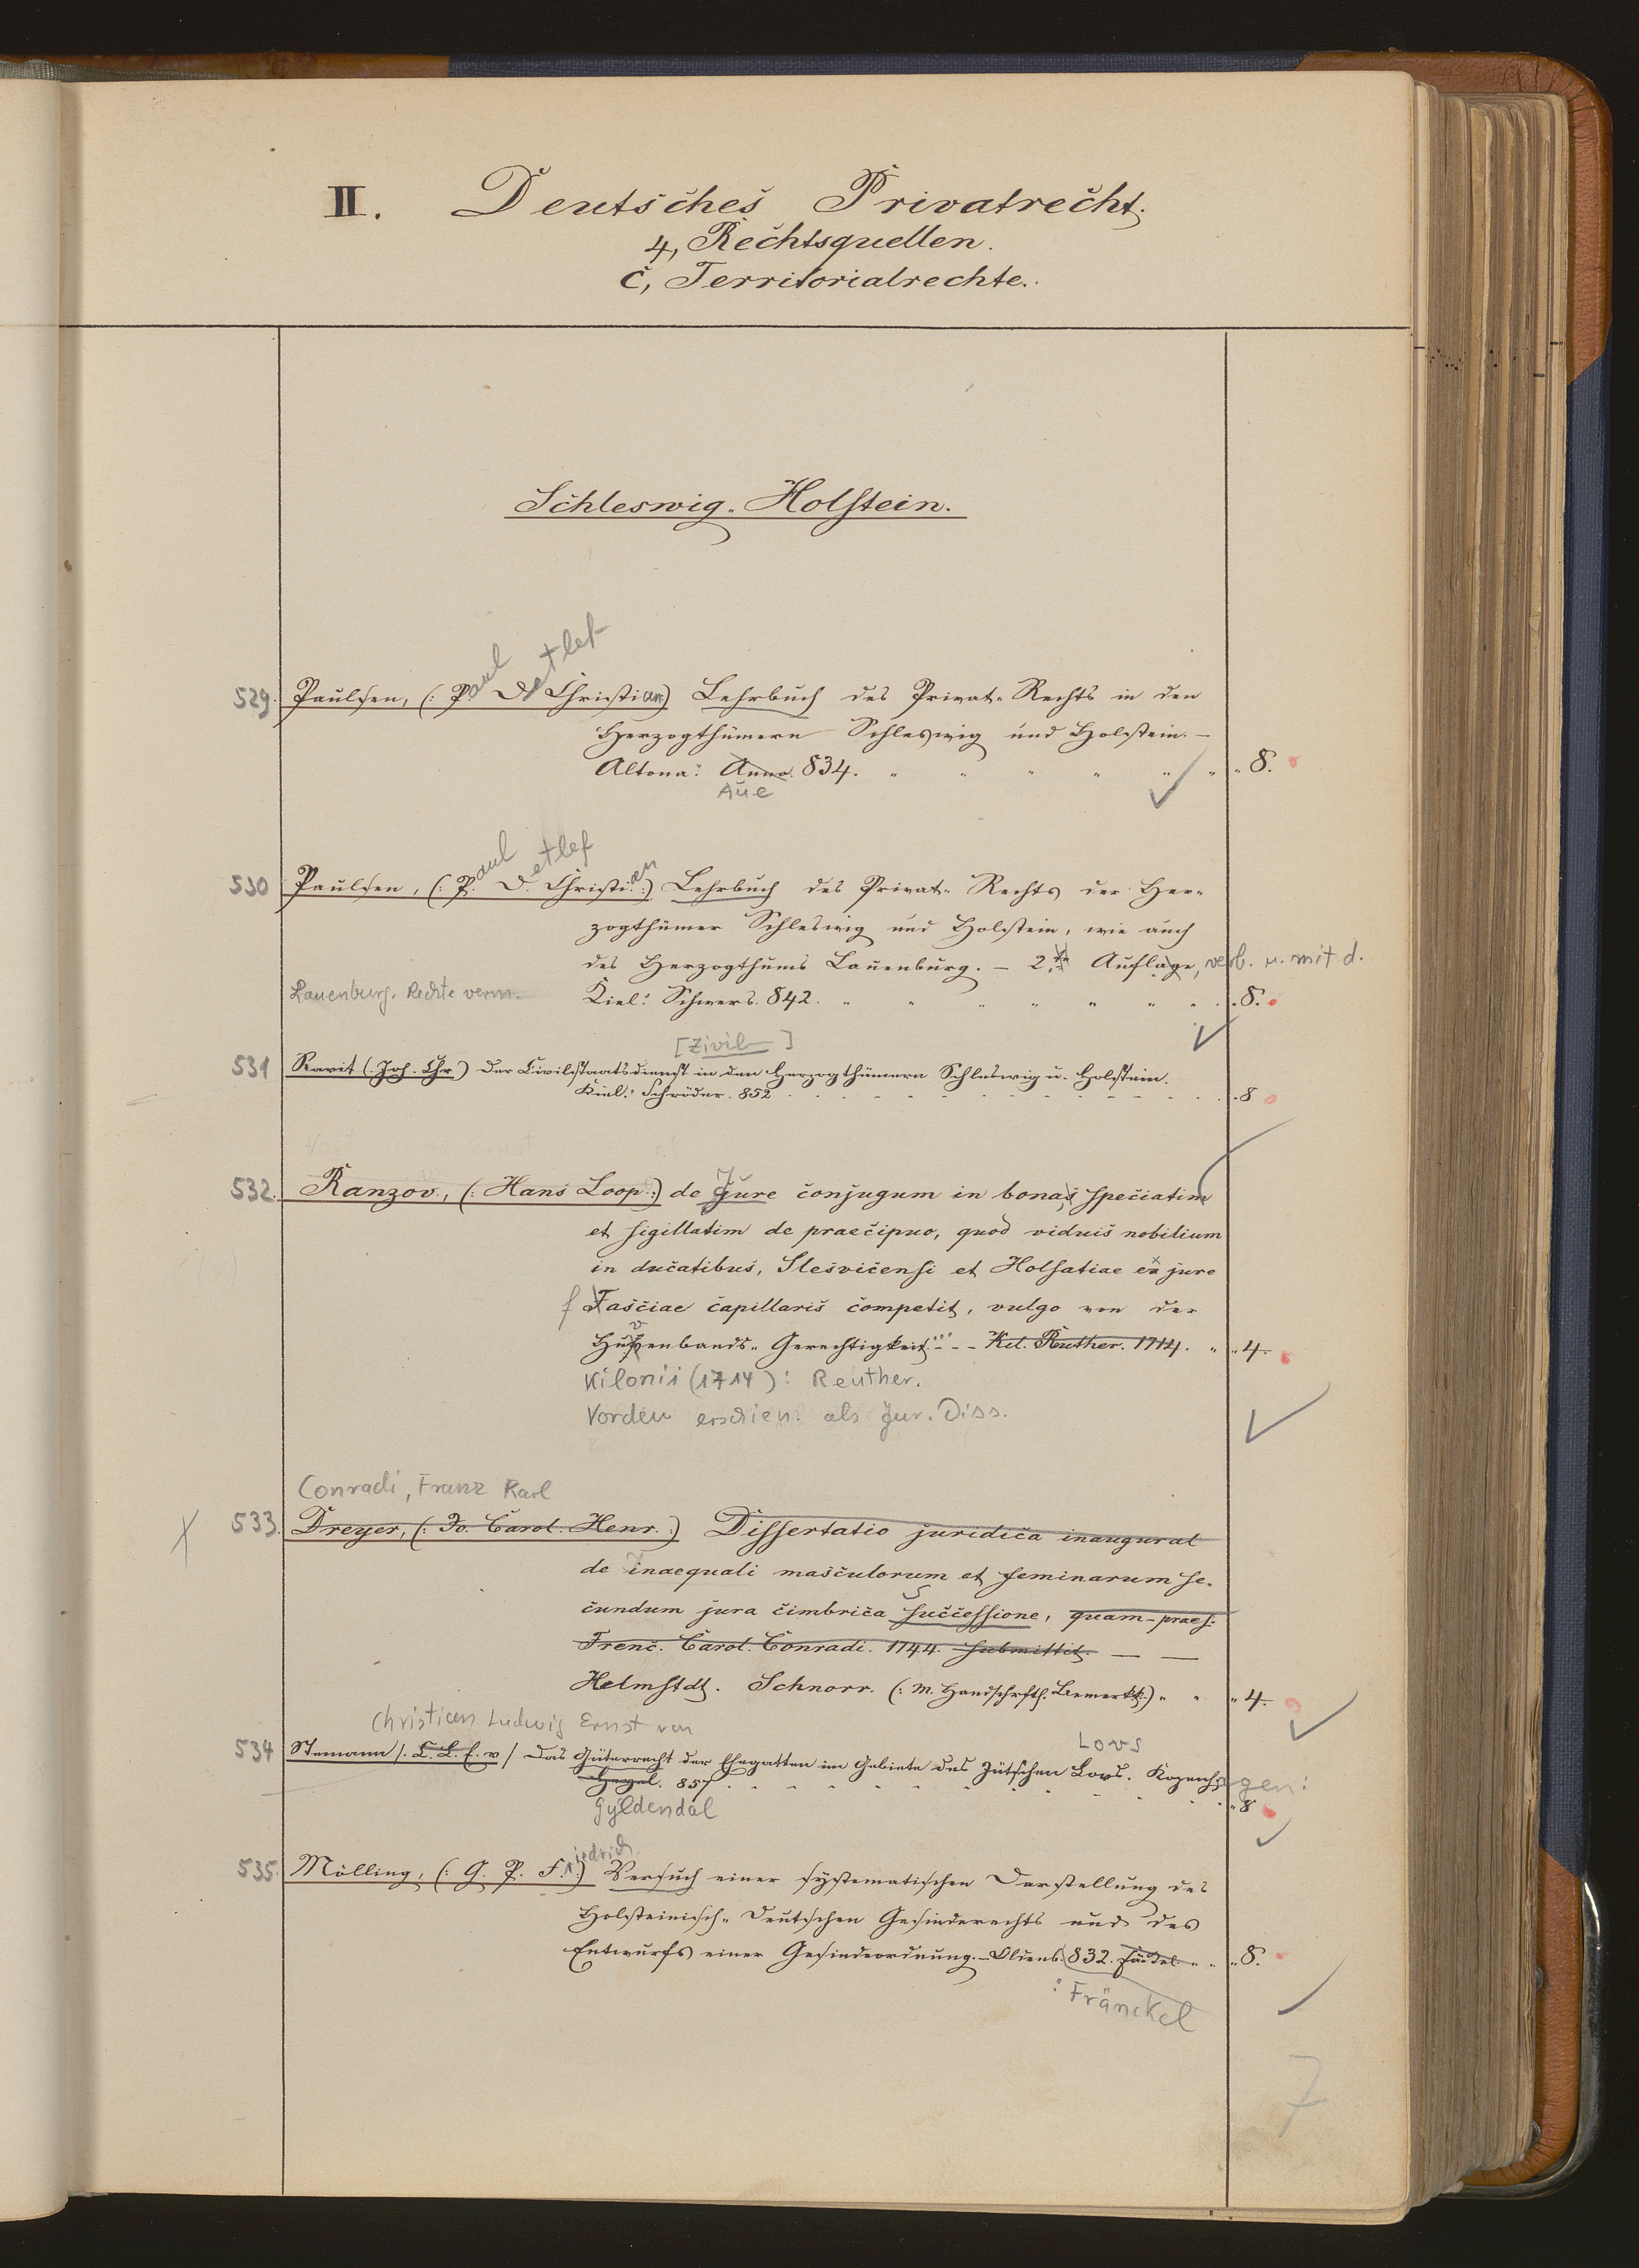 II. Deutsches Privatrecht.
4, Rechtsquellen.
c, Territorialrechte.
Schleswig-Holstein.
aul etlef
529. Paulsen, (: P. D. Christian) Lehrbuch des Privat-Rechts in den
Herzogthümern Schleswig und Holstein. –
Altona: Anno. 834. " " " " " " " 8.
Aue
aul etlef an
530 Paulsen, (: P. D. Christi. :) Lehrbuch des Privat-Rechts der Her-
zogthümer Schleswig und Holstein, wie auch
des Herzogthums Lauenburg. – 2. Auflage, verb. u. mit d.
Lauenburg. Rechte verm. Kiel: Schwers. 842. " " " " " " 8.
[Zivil–]
531 Ravit (. Joh. Chr.) Der Civilstaatsdienst in den Herzogthümern Schleswig u. Holstein.
Kiel: Schröder. 852 . . . 8
532. Ranzov., (: Hans Loop :) de Jure conjugum in bonas speciatim
et sigillatim de praecipuo, quod viduis nobilium
in ducatibus, Slesvicensi et Holsatiae ex jure
f Fasciae capillaris competit, vulgo von der
Huvenbands-Gerechtigkeit - - - Kil. Reuther. 1714. " " 4.
Kilonii (1714): Reuther.
Vordem erschien. als Jur. Diss.
Conradi, Franz Karl
X 533. Dreyer, (: Jo. Carol. Henr. :) Dissertatio juridica inaugural
de inaequali masculorum et feminarum se-
cundum jura cimbrica successione, quam – praes:
Frenc. Carol. Conradi. 1744. submittit. — —
Helmstdt. Schnorr. (: m. Handschrftl. Bemerkk:) " " " 4.
Christian Ludwig Ernst von Lovs
534 Stemann /. C. L. E. v / Das Güterrecht der Ehegatten im Gebiete des Jütschen Lovs. Kopenhagen:
Hegel. 857 . . . 8
Gyldendal
iedrich
535. Mölling, (: G. P. F. :) Versuch einer systematischen Darstellung des
Holsteinisch-Deutschen Gesinderechts und des
Entwurfs einer Gesindeordnung. – 832. " " 8.
: Fränckel
7